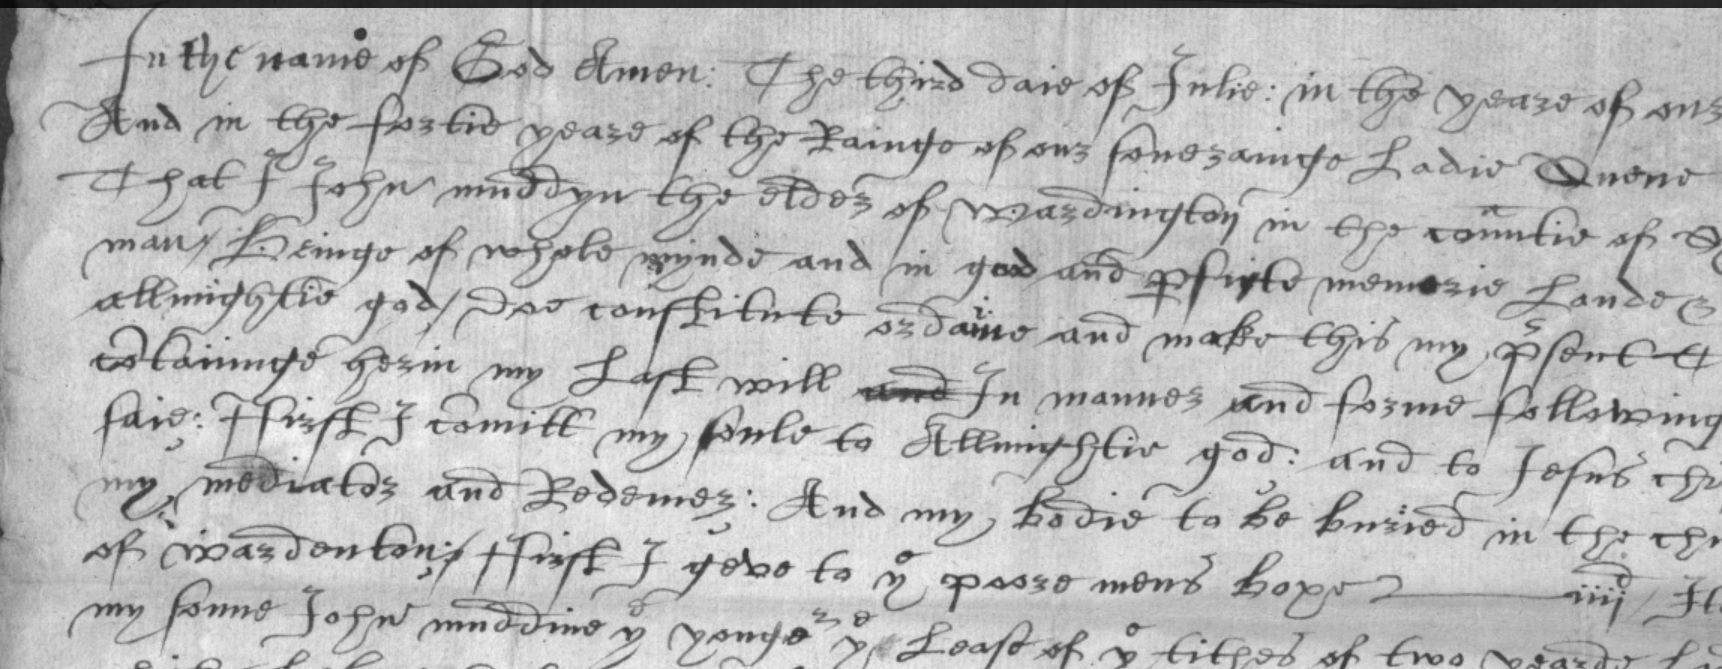 In the name of God Amen: The third daie of Julie: in the yeare of our
And in the fortie yeare of the Rainge of our soverainge Ladie Quene
That I John muddyn the elder of Wardington in the countie of
man/ Beinge of whole mynde and in god and pfycte memorie Laude &
allmightie god/ doe constitute ordaine and make this my psent T
cōtaininge herin my Last will and In manner and forme following
saie: ffirst I cōmitt my soule to Allmightie god: and to Jesus chri
my mediator and Redemer: And my bodie to be buried in the chu
of wardenton:/ ffirst I geve to yᵉ poore mens boxe iiijᵈ/ Ite
my sonne John muddine yᵉ yongeʳ yᵉ Lease of yᵉ tithes of two yearde La